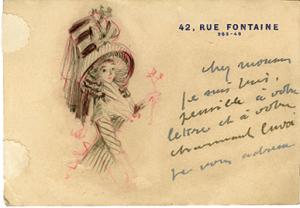 42, RUE FONTAINE
265-48
cher monsieur
je suis très
sensible à votre
lettre et à votre
charmant envoi
je vous adresse